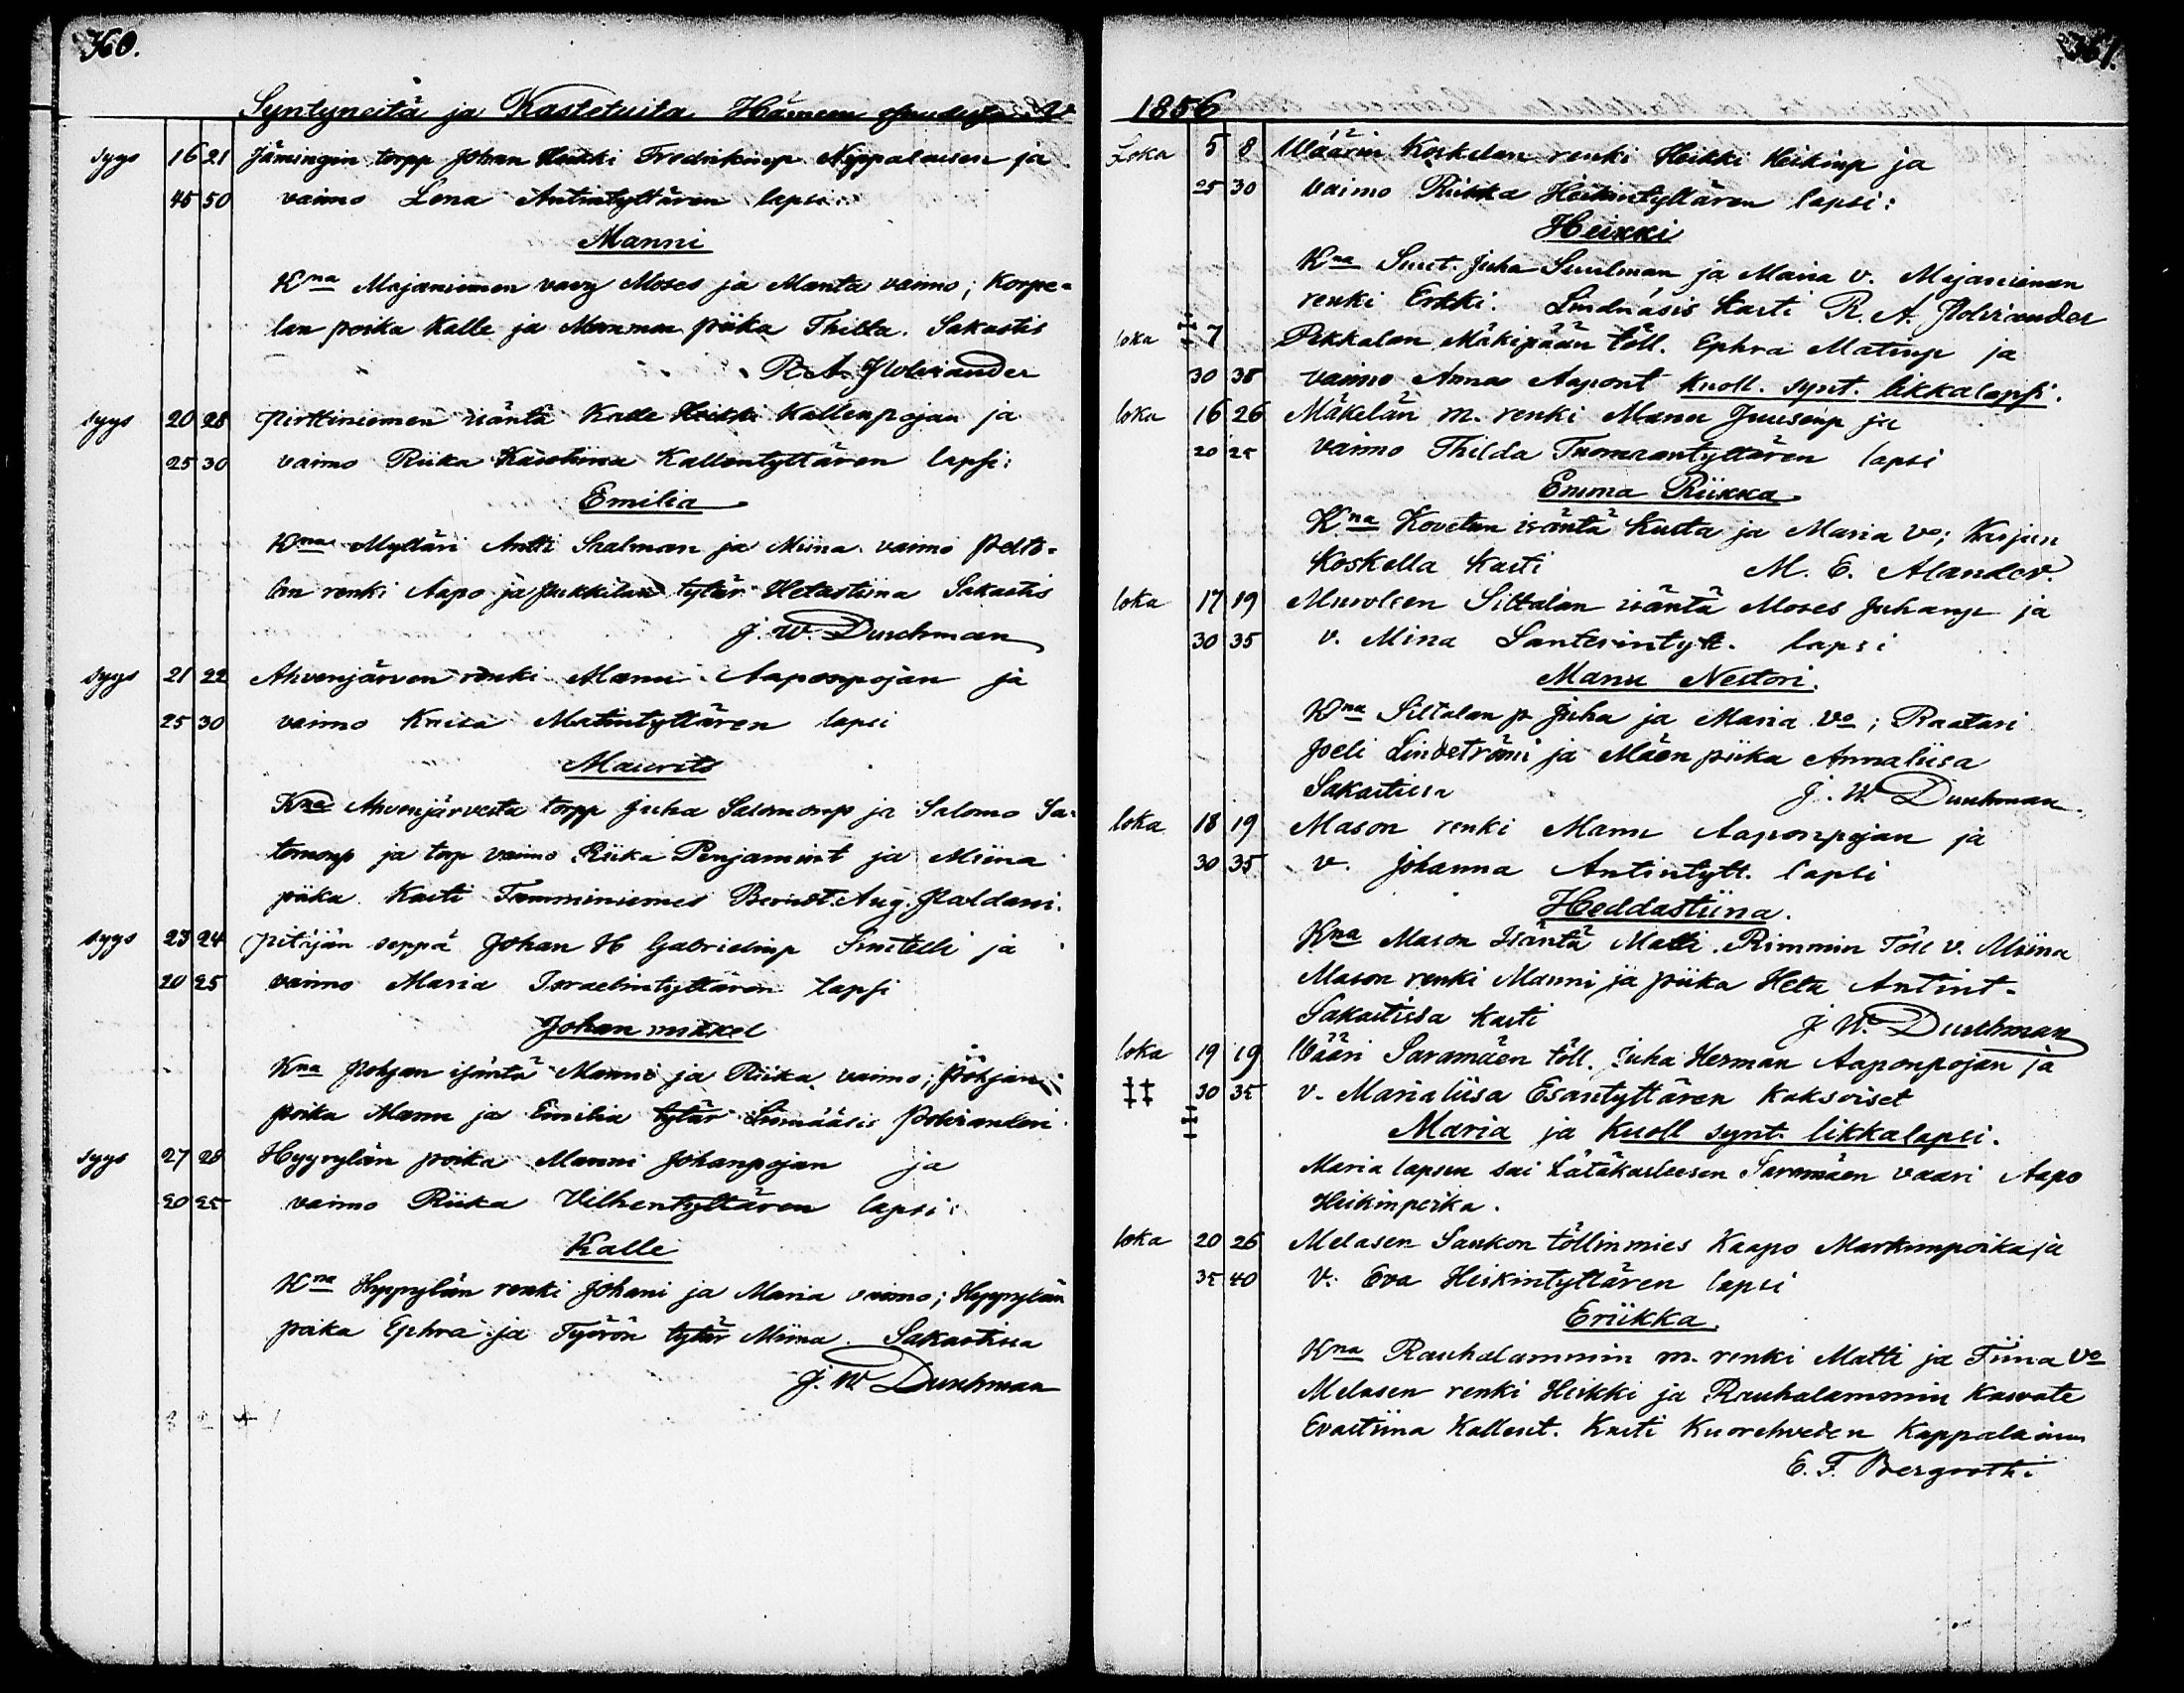 360.
Syntyneitä ja Kastetuita Hämeen
syys 16 21 Jämingin torpp Johan Heikki Fredrikinp Nyppalaisen ja
45 50 vaimo Lena Antintyttären lapsi:
Manni
Kna Majaniemen vävy Moses ja Manta vaimo; Korpe-
lan poika Kalle ja Mamman piika Thilta. Sakastis
R. A. Polviander
syys 20 28 Pirttiniemen isäntä Kalle Heikki Kallenpojan ja
25 30 vaimo Riika Kallentyttären lapsi:
Emilia
Kna Mylläri Antti Saalman ja Miina vaimo Pelto-
lan renki Aapo ja Jukkilan tytär Hetastiina Sakastis
J. W. Durchman
syys 21 22 Ahvenjärven renki Manu Aaponpojan ja
25 30 vaimo Kaisa Matintyttären lapsi
Maurits
Kna Ahvenjärvestä torpp Juha Salomonp ja Salomo Sa-
lomonp ja torp vaimo Riika Penjamint ja Miina
piika. Kasti Tamminiemes Berndt. Aug. Paldani.
syys 23 24 Pitäjän seppä Johan H Gabrielinp Smitelli ja
20 25 vaimo Maria Israelintyttären lapsi
Johan mikkel
Kna Pohjan isäntä Manni ja Riika vaimo; Pohjan
poika Manu ja Emilia tytär Linnääsis Polvianderi.
syys 27 28 Hyyrylän poika Manni Johanpojan ja
20 25 vaimo Riika Vilhentyttären lapsi:
Kalle
Kna Hyyrylän renki Johani ja Maria vaimo; Hyyrylän
poika Ephra ja Työrön tytär Miina. Sakastissa
J. W. Durchman
361.
1856
Loka 5 8 Wäärin Koskelan renki Heikki Heikinp ja
25 30 vaimo Riikka Heikintyttären lapsi:
Heikki
Kna Suut. Juha Suulman ja Maria v. Majaniemen
renki Erkki. Lindnäsis kasti R. A. Polviander
loka 7 Pekkalan Mäkipään töll. Ephra Matinp ja
30 35 vaimo Anna Aapont kuoll. synt. likkalapsi.
loka 16 26 Mäkelän m. renki Manu Juusenp ja
20 25 vaimo Thilda Tuomaantyttären lapsi
Emma Riikka
Kna Kovelan isäntä Kusta ja Maria vo; Karjun
Koskella Kasti M. E. Alander.
loka 17 19 Muroleen Siltalan isäntä Moses Juhanp ja
30 35 v. Mina Santerintytt. lapsi
Manu Nestori.
Kna Siltalan p Juha ja Maria vo; Raatari
Joeli Lindströmi ja Mäen piika Annaliisa
Sakastissa J. W. Durchman.
loka 18 19 Mason renki Manu Aaponpojan ja
30 35 v. Johanna Antintytt. lapsi
Heddastiina.
Kna Mason Isäntä Matti. Rimmin Töll v. Miina
Mason renki Manni ja piika Heta Antint.
Sakastissa kasti J W. Durchman
loka 19 19 Wääri Saramäen töll. Juha Herman Aaponpojan ja
30 35 v. Marialiisa Esantyttären kaksoiset
Maria ja kuoll synt. likkalapsi.
Maria lapsen sai hätäkasteesen Saramäen vaari Aapo
Heikinpoika.
loka 20 26 Melasen Saukon töllinmies Kaapo Markunpoika ja
35 40 v. Eva Heikintyttären lapsi
Eriikka.
Kna Rauhalammin m. renki Matti ja Tiina vo
Melasen renki Heikki ja Rauhalammin kasvate
Evastiina Kallent. Kasti Kuorehveden Kappalainen
E. F. Bergroth.